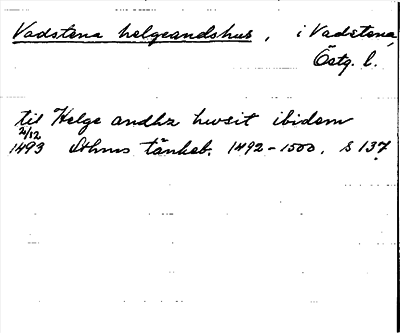 Vadstena helgeandshus, i Vadstena,
Östg. l.
til Helge andhz hwsit ibidem
2/12
1493 Sthms tänkeb. 1492-1500. s 137